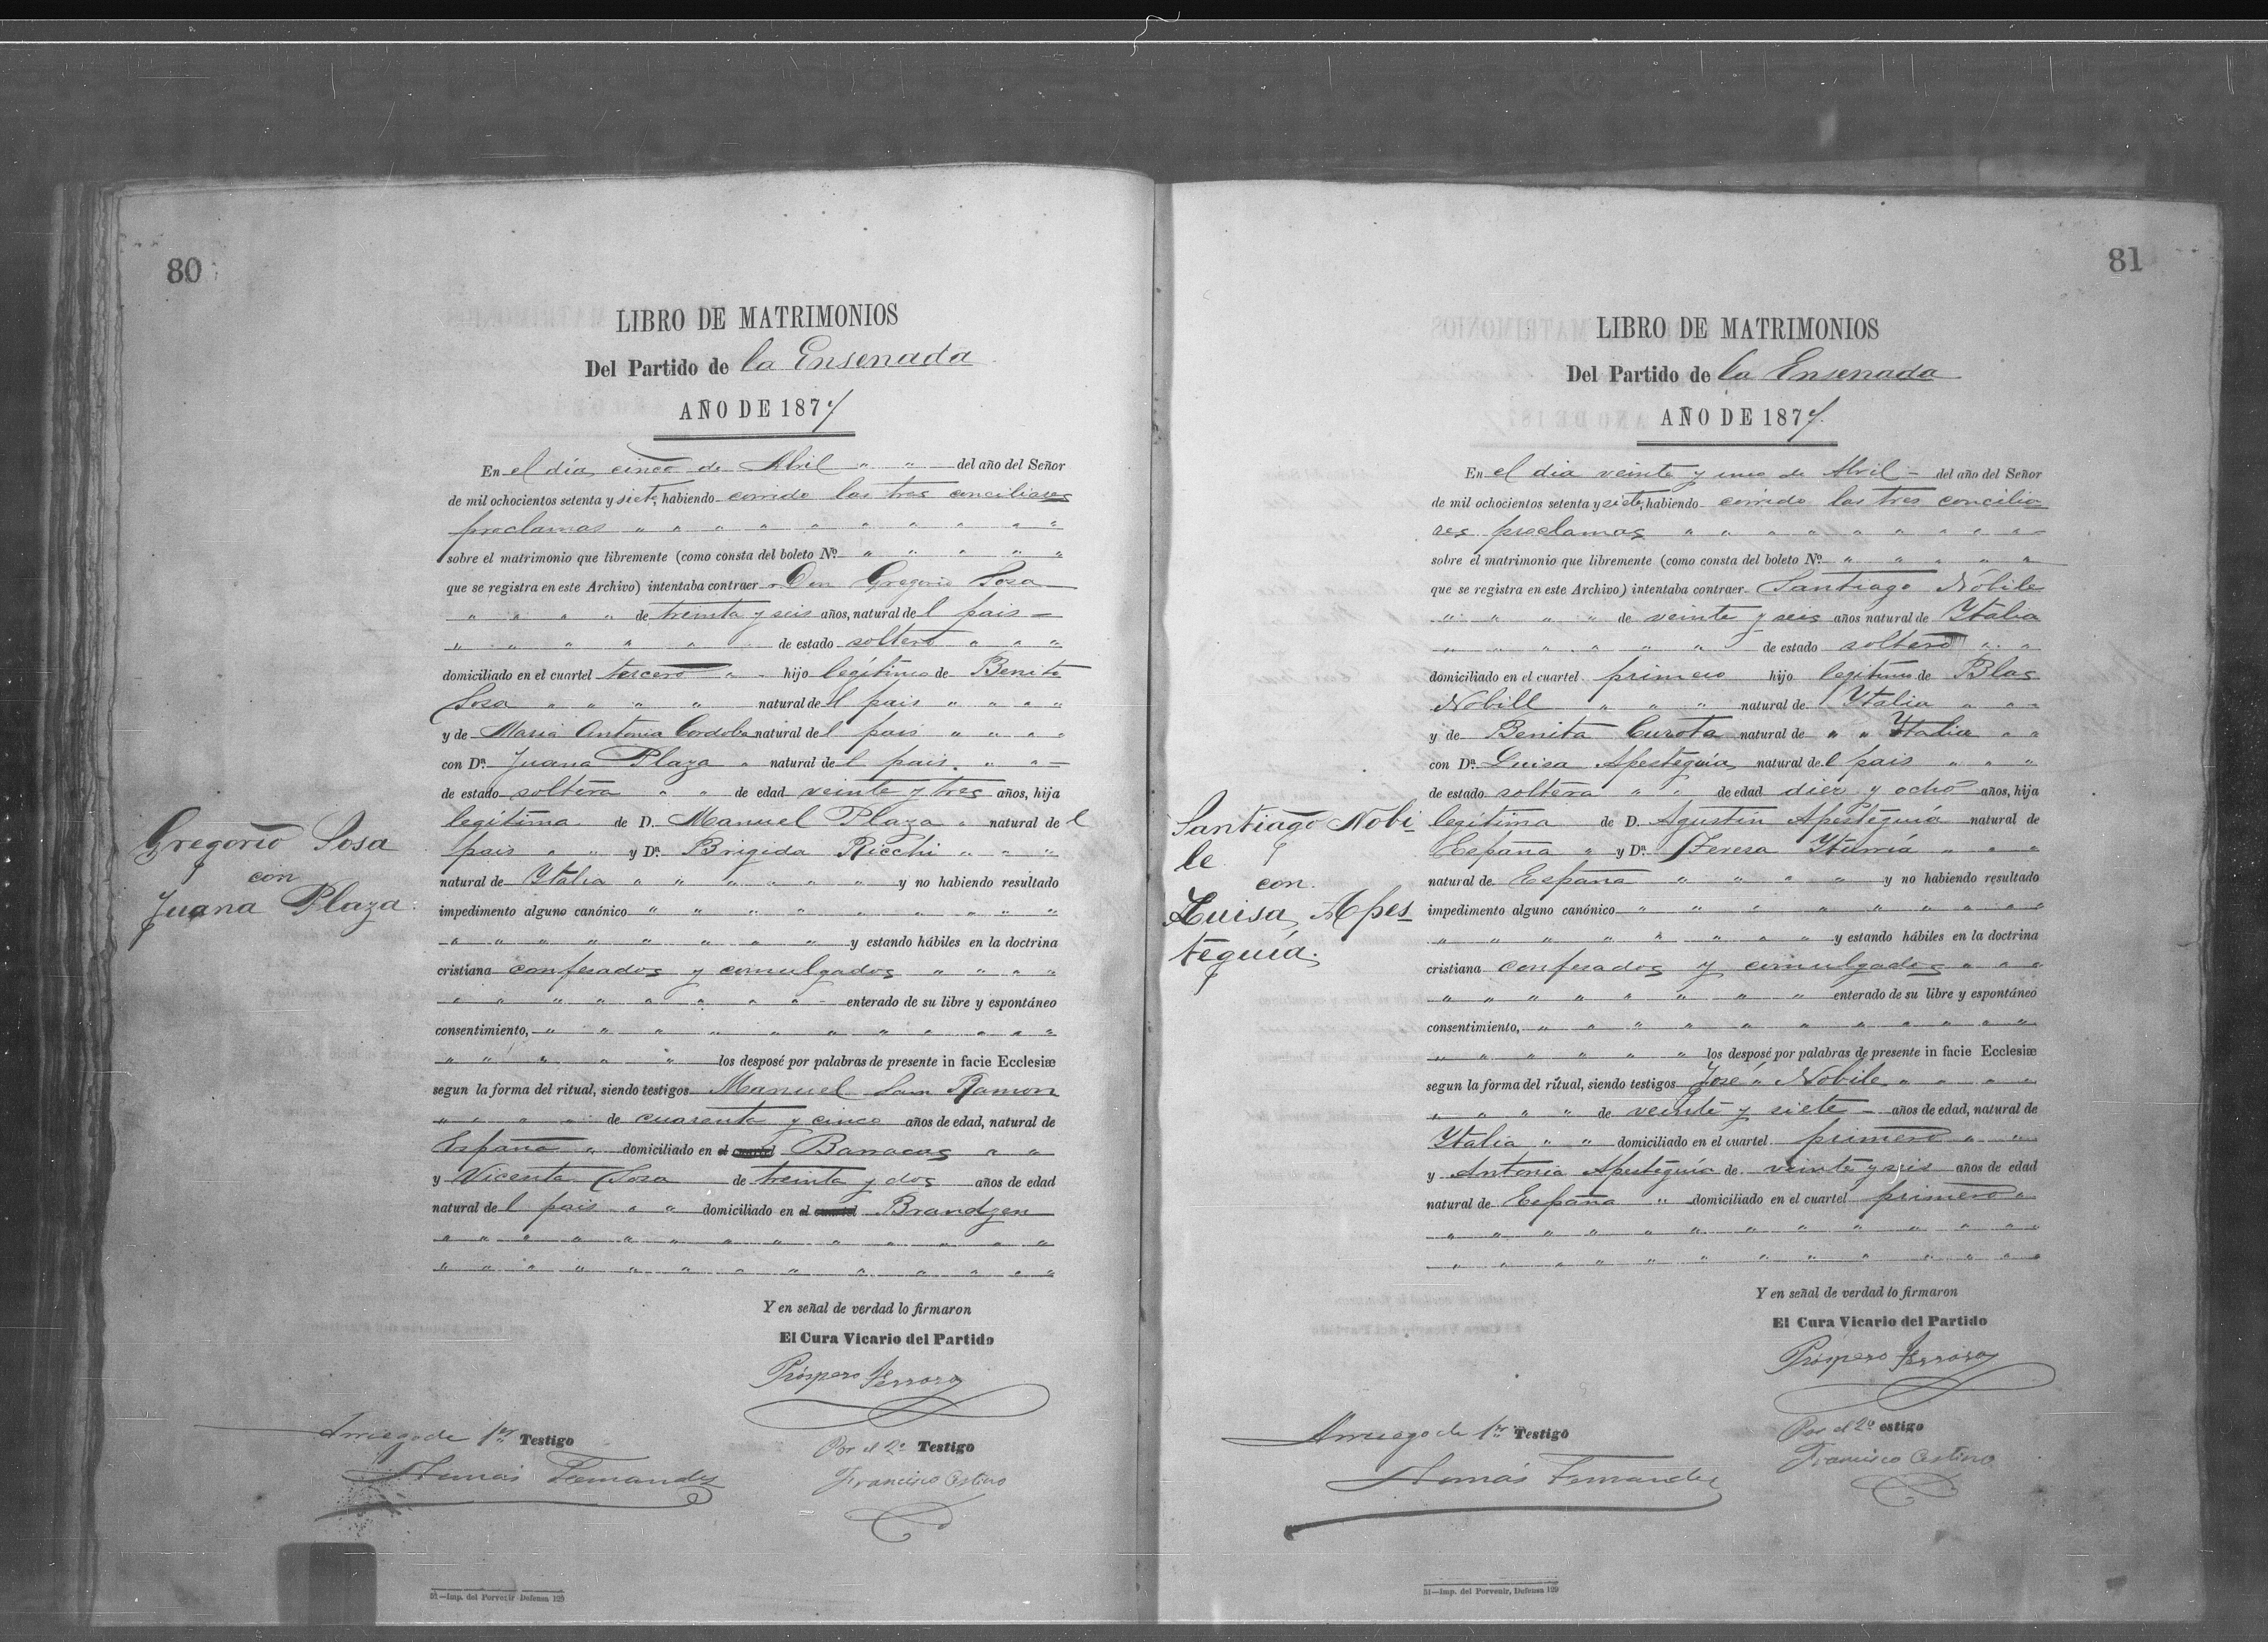 80
LIBRO DE MATRIMONIOS
Del Partido de la Ensenada
AÑO DE 1877
En el dia cinco de Abril " " del año del Señor
de mil ochocientos setenta y siete, habiendo corrido las tres conciliares
proclamas " " " " " " " " " "
sobre el matrimonio que libremente (como consta del boleto Nº " " " " "
que se registra en este Archivo) intentaba contraer Don Gregorio Sosa
" " " " de treinta y seis años, natural del pais
" " " " " " de estado soltero " " "
domiciliado en el cuartel tercero " " hijo legítimo de Benito
Sosa " " " " natural del pais " " " "
y de Maria Antonia Cordoba natural del pais " " " "
con Dª Juana Plaza " natural del pais. " "
de estado soltera " " de edad veinte y tres años, hija
legítima de D. Manuel Plaza " natural del
pais " " y Dª Brigida Ricchi " " "
natural de Ytalia " " " " " " y no habiendo resultado
impedimento alguno canónico " " " " " " " " "
" " " " " " " " y estando hábiles en la doctrina
cristiana confesados y comulgados " " " "
" " " " " " " " enterado de su libre y espontáneo
consentimiento, " " " " " " " " " " "
" " " " " los desposé por palabras de presente in facie Ecclesiæ
segun la forma del ritual, siendo testigos Manuel San Ramon
" " " " de cuarenta y cinco años de edad, natural de
España " domiciliado en el cuartel Barracas " "
y Vicenta Sosa de treinta y dos años de edad
natural del pais " " domiciliado en el cuartel Brandzen
" " " " " " " " " " " " "
" " " " " " " " " " " " "
Gregorio Sosa
con
Juana Plaza.
Y en señal de verdad lo firmaron
El Cura Vicario del Partido
Próspero Ferraro
Arruego de 1er Testigo
Tomás Fernandez
Por el 2º Testigo
Francisco Cestino
51—Imp. del Porvenir Defensa 129
81
LIBRO DE MATRIMONIOS
Del Partido de la Ensenada
AÑO DE 1877.
En el dia veinte y uno de Abril del año del Señor
de mil ochocientos setenta y siete, habiendo corrido las tres concilia
res proclamas " " " " " " " " " "
sobre el matrimonio que libremente (como consta del boleto Nº " " " " "
que se registra en este Archivo) intentaba contraer Santiago Nóbile
" " " " de veinte y seis años natural de Ytalia
" " " " " " de estado soltero " "
domiciliado en el cuartel primero hijo legitimo de Blas
Nobill " " " natural de Ytalia " " "
y de Benita Curota natural de " " Ytalia " "
con Dª Luisa Apesteguía natural del pais " " "
de estado soltera " " de edad diez y ocho años, hija
legítima de D. Agustin Apesteguía natural de
España " y Dª Teresa Yturria " " "
natural de España " " " " y no habiendo resultado
impedimento alguno canónico " " " " " " " " "
" " " " " " " " y estando hábiles en la doctrina
cristiana confesados y comulgados " " "
" " " " " " " " enterado de su libre y espontáneo
consentimiento, " " " " " " " " " " "
" " " " " " los desposé por palabras de presente in facie Ecclesiæ
segun la forma del ritual, siendo testigos José " Nobile " " " "
" " " " de veinte y siete años de edad, natural de
Ytalia " " domiciliado en el cuartel primero " "
y Antonia Apesteguía de veinte y seis años de edad
natural de España " domiciliado en el cuartel primero "
" " " " " " " " " " " " "
" " " " " " " " " " " " "
Santiago Nobi-
le
con.
Luisa Apes-
teguía.
Y en señal de verdad lo firmaron
El Cura Vicario del Partido
Próspero Ferraro
Arruego de 1er Testigo
Tomás Fernandez
Por el 2º estigo
Francisco Cestino
51—Imp. del Porvenir, Defensa 129